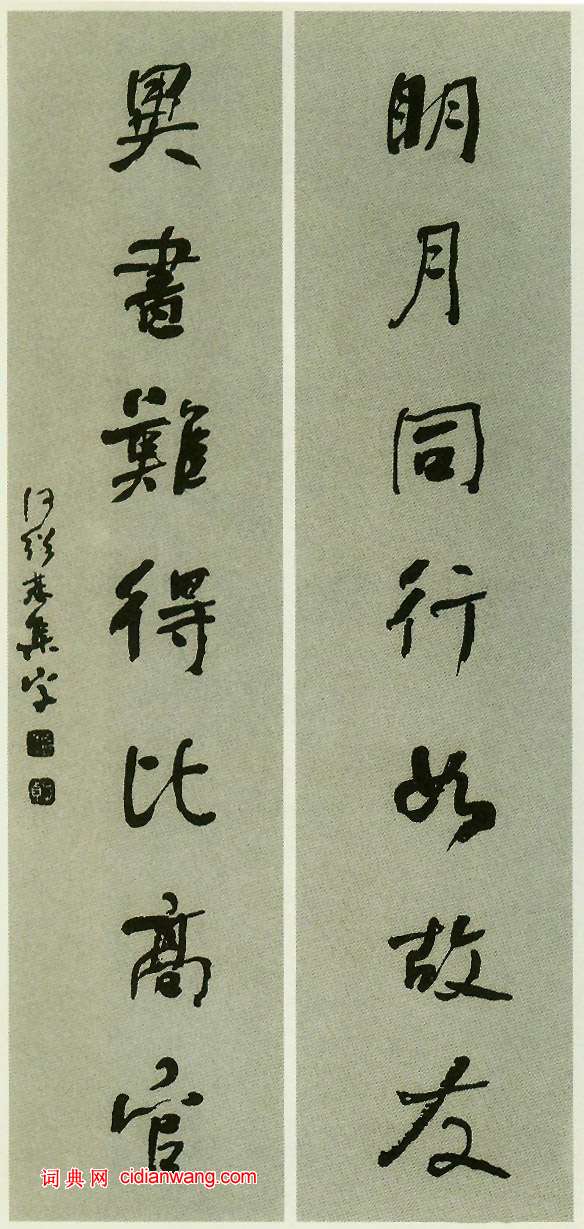 明月同行如故友
異書難得比高官
何紹基集字
词典网 cidianwang.com